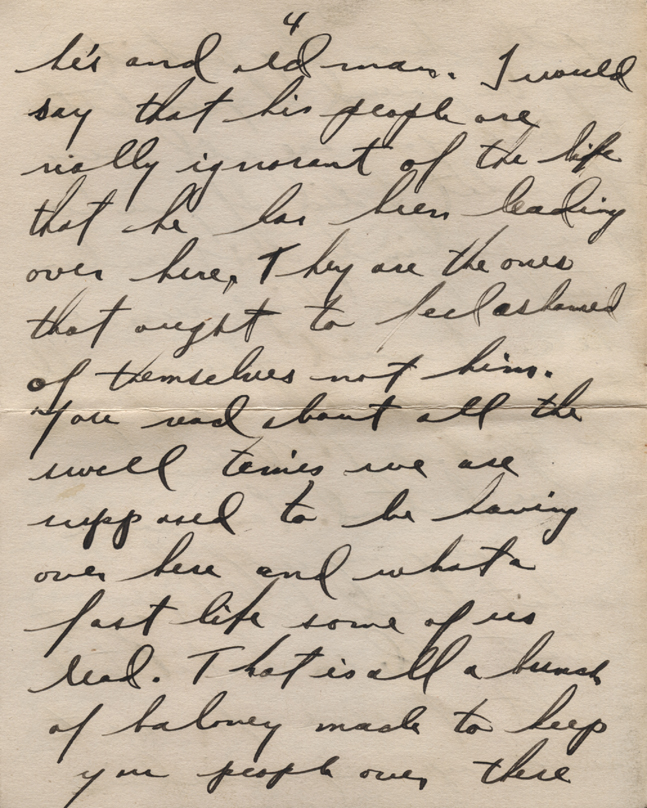 4
he's and old man. I would
say that his people are
really ignorant of the life
that he has been leading
over here, They are the ones
that ought to feel ashamed
of themselves not him.
You read about all the
swell times we are
supposed to be having
over here and what a
fast life some of us
lead. That is all a bunch
of baloney made to keep
you people over there